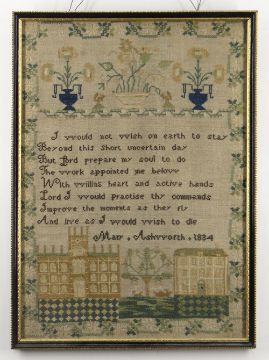 I would not wish on earth to stay
Beyond this short uncertain day
But Lord prepare my soul to do
The work appointed me below
With willing heart and active hands
Lord I would practise thy commands
Improve the moments as they fly
And live as I would wish to die
Mary Ashworth 1834